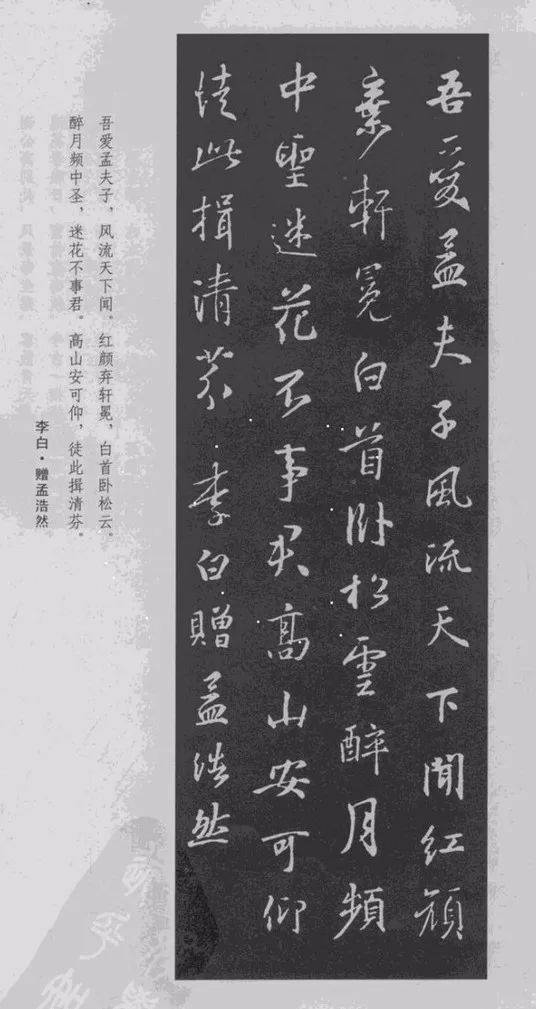 吾爱孟夫子風流天下聞红颜
棄軒冕白首卧松雲醉月頻
中聖迷花不事君高山安可仰
徒此揖清芬 李白贈孟浩然
吾爱孟夫子，风流天下闻。红颜弃轩冕，白首卧松云。
醉月频中圣，迷花不事君。高山安可仰，徒此揖清芬。
李白·赠孟浩然